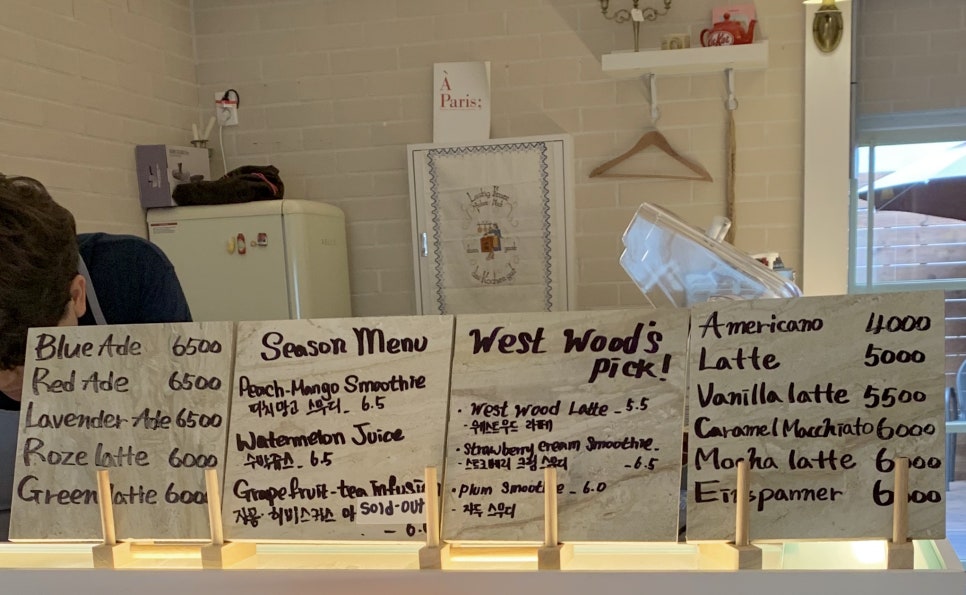 À
Paris;
Blue Ade 6500
Red Ade 6500
Lavender Ade 6500
Roze latte 6000
Green latte 6000
Season Menu
Peach-Mango Smoothie
피치망고 스무디 - 6.5
Watermelon Juice
수박쥬스 - 6.5
Grapefruit-tea Infusion
자몽·히비스커스 아 Sold-out
West Wood's
Pick!
· West Wood Latte - 5.5
- 웨스트우드 라떼
· Strawberry cream smoothie
- 스트로베리 크림 스무디 - 6.5
· Plum Smoothie - 6.0
- 자두 스무디
Americano 4000
Latte 5000
Vanilla latte 5500
Caramel Macchiato 6000
Mocha latte 6000
Einspanner 6000